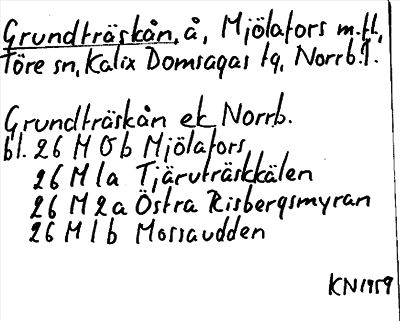 Grundträskån, å, Mjölafors m.fl.,
Töre sn, Kalix Domsagas tg, Norrb. l.
Grundträskån ek Norrb.
bl. 26 M 0 b Mjölafors
26 M 1 a Tjäruträskkälen
26 M 2 a Östra Risbergsmyran
26 M 1 b Mossaudden
KN 1959